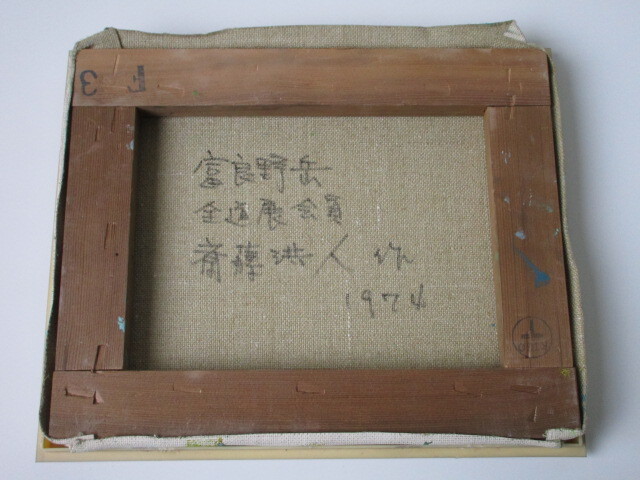 F3
富良野岳
全道展会員
斎藤洪人 作
1974